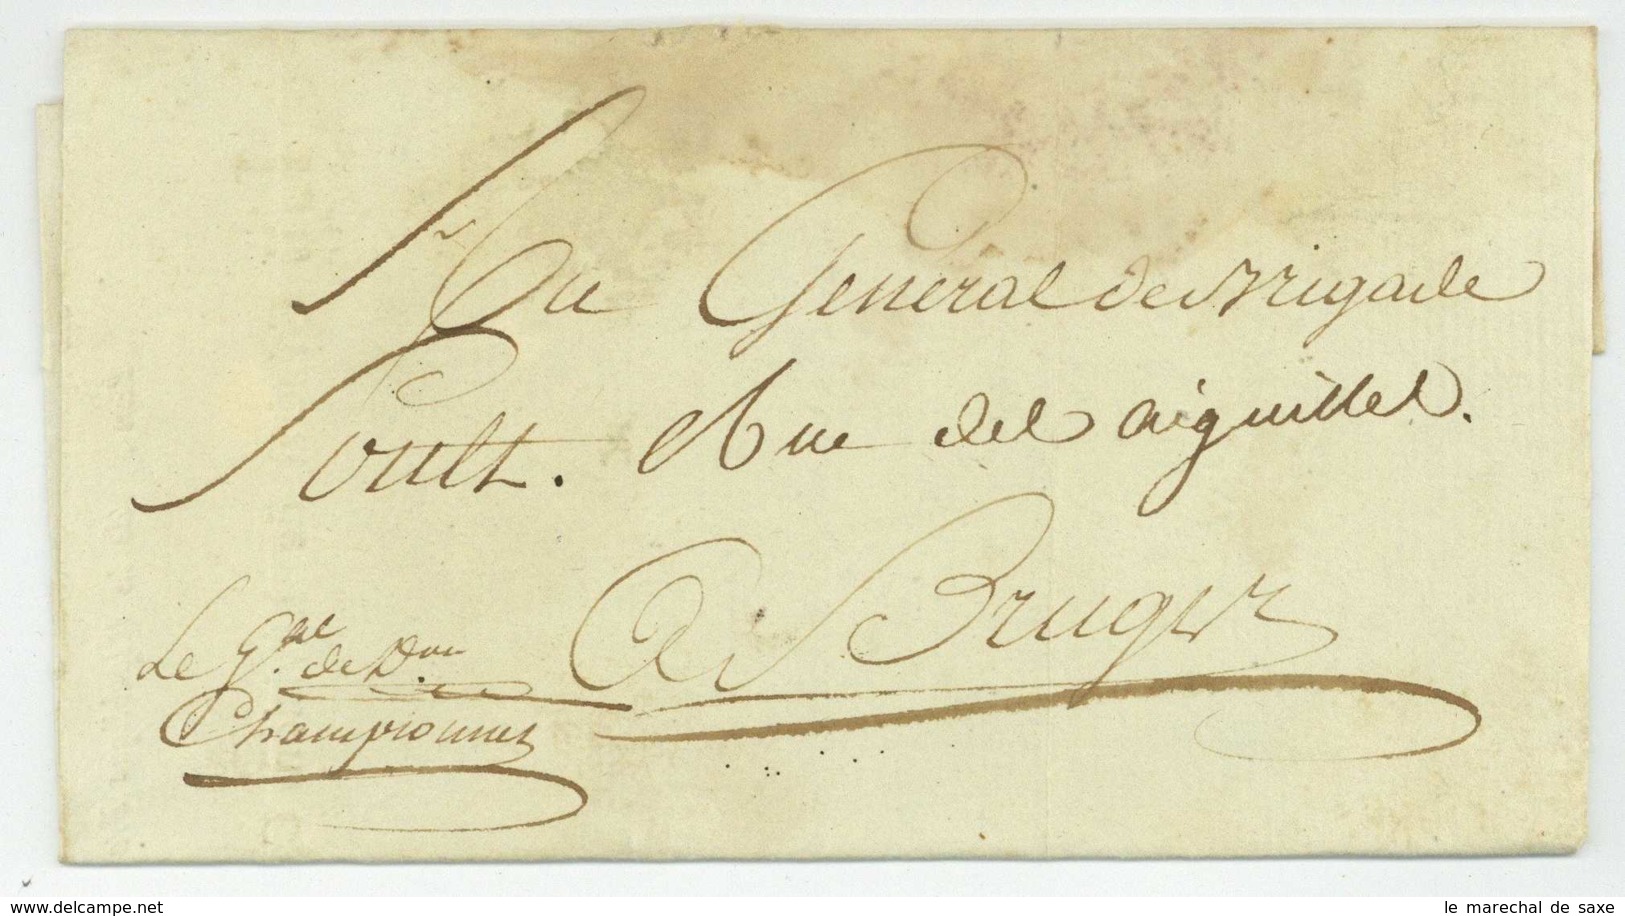 Au Général de Brigade
Soult. Rue des aiguilles.
A Bruges
Le G.al de D.on
Championnet
www.delcampe.net
le marechal de saxe